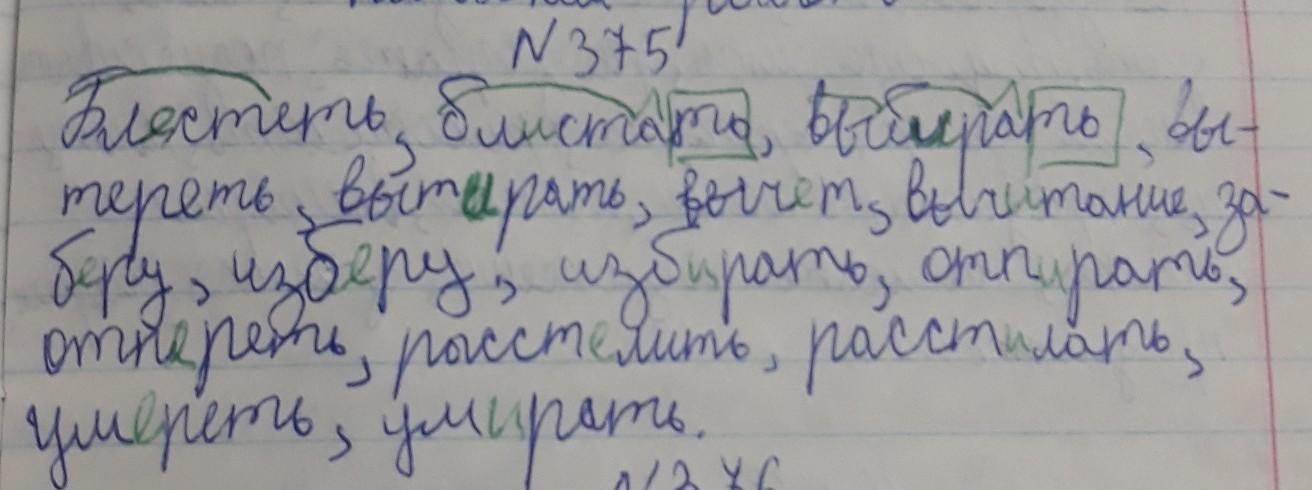 N 375
Блестеть, блистать, выбирать, вы-
тереть, вытирать, вычет, вычитание, за-
беру, изберу, избирать, отпирать,
отпереть, расстелить, расстилать,
умереть, умирать.
N 376